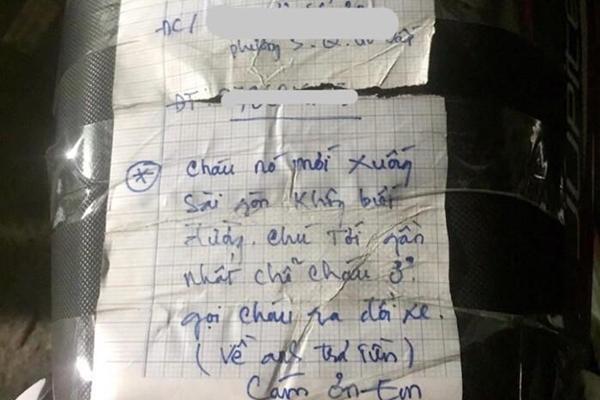 ĐC/
phường 5. Q. Gò Vấp
ĐT:
* Cháu nó mới xuống
Sài gòn không biết
đường. Chú tới gần
nhất chỗ cháu ở.
gọi cháu ra đổi xe.
(Về anh trả tiền)
Cảm ơn em
JUPITE